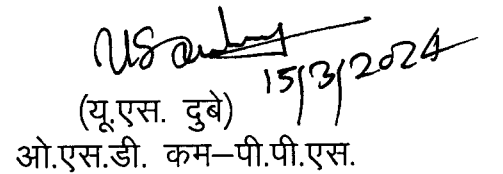 15/3/2024
(यू.एस. दुबे)
ओ.एस.डी. कम–पी.पी.एस.